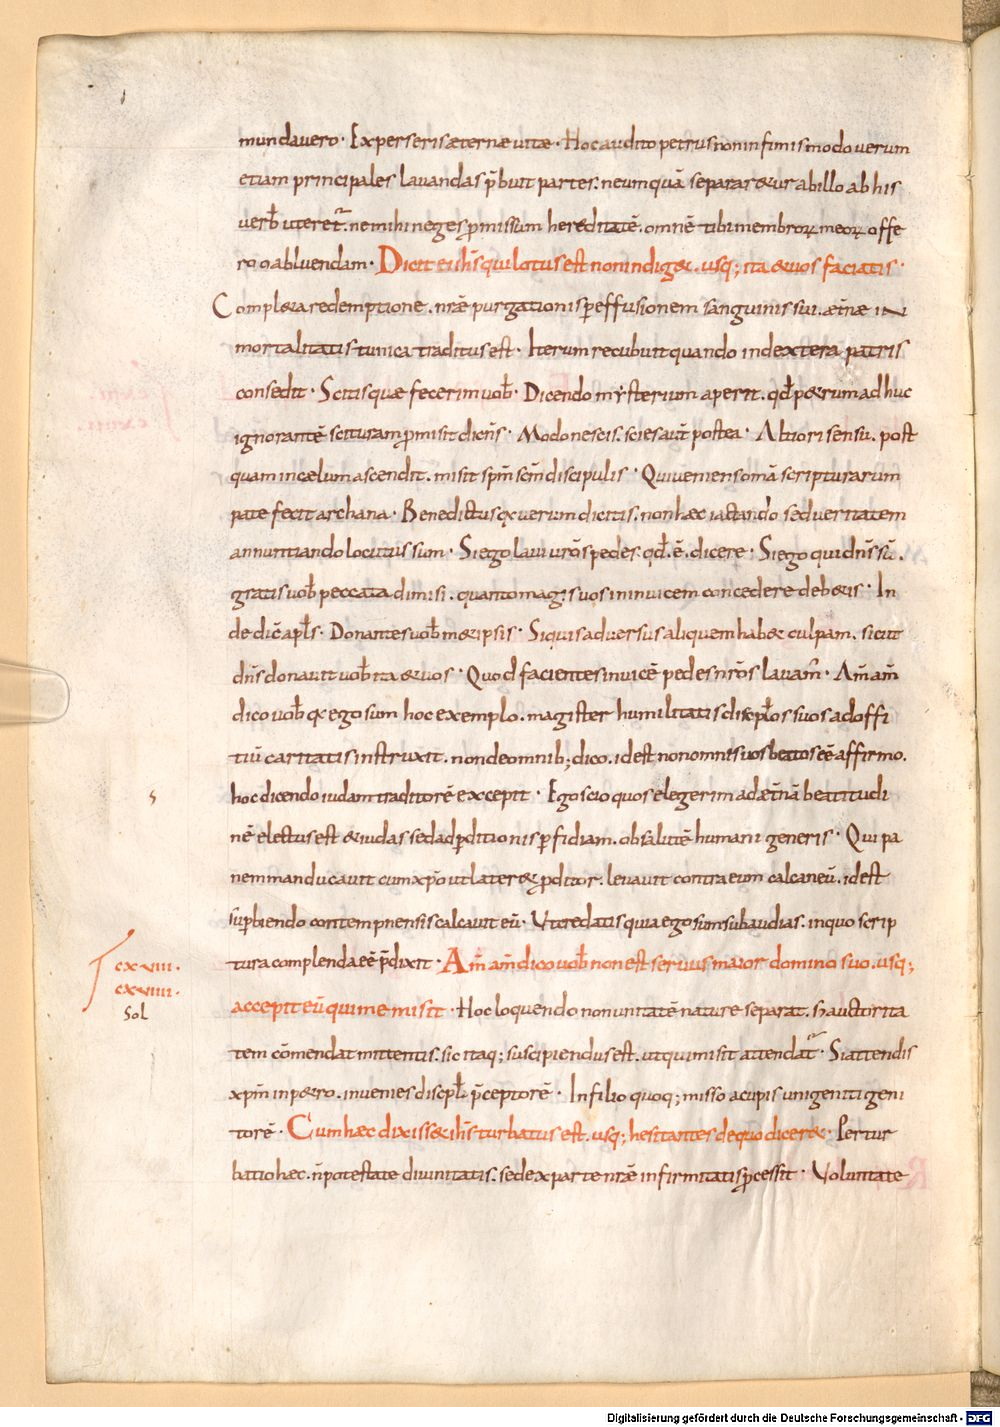 mundavero · Expers eris æternæ vitæ · Hoc audito petrus non infimis modo verum
etiam principales lavandas p̄buit partes. ne umquā separar&ur ab illo ab his
verb̄ uteret᷑. ne mihi neges ꝓmissum hereditatē. omnē tibi membroꝝ meoꝝ offe
ro o abluendam · Dicit ei ih̄s qui lotus est non indig&. usq; ita & vos faciatis ·
Compl&a redemptione. nr̄æ purgationis ꝑ effusionem sanguinis sui. æt̄næ in
mortalitatis tunica traditus est · Iterum recubuit quando in dextera patris
consedit · Scitis quæ fecerim vob̄ · Dicendo mysterium aperit. qd̄ p&rum adhuc
ignorantē scituram ꝓmisit dicn̄s · Modo nescis. scies aut̄ postea · Altiori sensu. post
quam in cælum ascendit. misit sp̄m sc̄m discipulis · Qui veniens omā scripturarum
patefecit archana · Benedictus qꝫ verum dicitis. non hæc iactando sed veritatem
annuntiando locutus sum · Si ego lavi vr̄os pedes. qd̄. ē. dicere · Si ego qui dn̄s sū.
gratis vob̄ peccata dimisi. quanto magis vos in invicem concedere deb&is · In
de dic̄ apl̄s · Donantes vob̄ m&ipsis · Siquis adversus aliquem hab& culpam. sicut
dn̄s donavit vob̄ ita & vos · Quod facientes invicē pedes nr̄os lavam̄ · Am̄ am̄
dico vob̄ qꝫ ego sum hoc exemplo. magister humilitatis discpl̄os suos ad offi
tiū caritatis instruxit. non de omnib; dico. id est non omnis vos beatos eē affirmo.
hoc dicendo iudam traditorē excepit · Ego scio quos elegerim ad æt̄nā beatitudi
nē electus est & iudas sed ad ꝑditionis ꝑfidiam. ob salutē humani generis · Qui pa
nem manducavit cum xp̄o ut later& ꝓditor. levavit contra eum calcaneū. id est
suꝑbiendo contempnens is calcavit eū · Ut credatis quia ego sum subaudias. in quo scrip
tura complenda eē p̄dixit · Am̄ am̄ dico vob̄ non est servus maior domino suo. usq;
accepit eū qui me misit · Hoc loquendo non unitatē nature separat. s; auctorita
tem cōmendat mittentis. sic itaq; suscipiendus est. ut qui misit attendat᷑ · Si attendis
xp̄m in p&ro. invenies discpl̄i p̄ceptorē · In filio quoq; misso acipis unigeniti geni
torē · Cum hæc dixiss& ih̄s turbatus est. usq; hesitantes de quo dicer& · Pertur
batio hæc. n̄ potestate divinitatis. sed ex parte nr̄æ infirmitatis ꝓcessit · Voluntate
cxviii.
cxviiii.
Sol
Digitalisierung gefördert durch die Deutsche Forschungsgemeinschaft - DFG